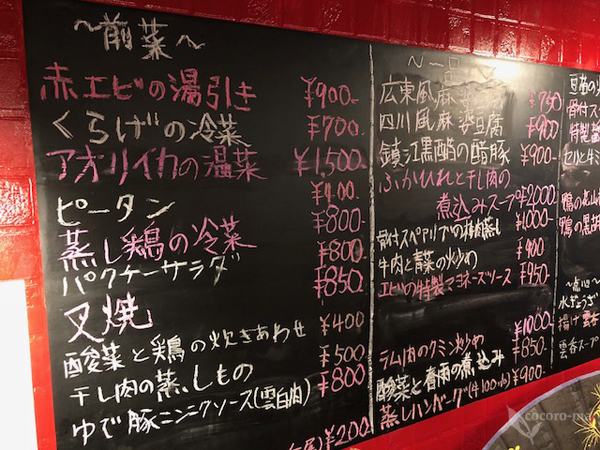 ~前菜~
赤エビの湯引き ¥900-
くらげの冷菜 ¥700-
アオリイカの温菜 ¥1,500-
ピータン ¥400-
蒸し鶏の冷菜 ¥800-
パクチーサラダ ¥800-
叉焼 ¥850-
酸菜と鶏の炊きあわせ ¥400
干し肉の蒸しもの ¥500-
ゆで豚ニンニクソース(雲白肉) ¥800
¥200
~一品
広東風麻婆豆腐 ¥750
四川風麻婆豆腐 ¥900
鎮江黒酢の酢豚 ¥900-
ふかひれと干し肉の
煮込みスープ ¥2000
骨付スペアリブの 蒸し ¥1000-
牛肉と青菜の炒め ¥900
エビの特製マヨネーズソース ¥950
ラム肉のクミン炒め ¥1000-
酸菜と春雨の煮込み ¥850-
蒸しハンバーグ ¥900-
骨付ス
特製
鴨の
鴨の黒
水ぎょうざ
揚げ雲呑
雲呑スープ
cocoro-ma